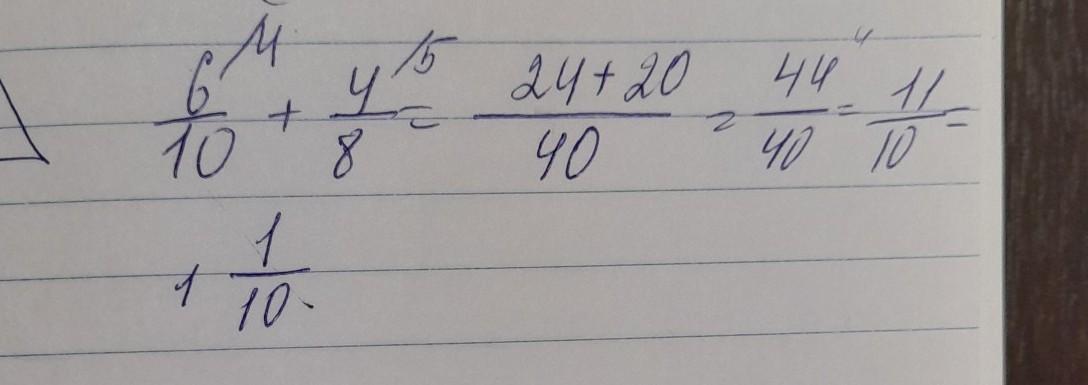 6/10 /4 + 4/8 /5 = 24+20/40 = 44/40 4 = 11/10 =
1 1/10